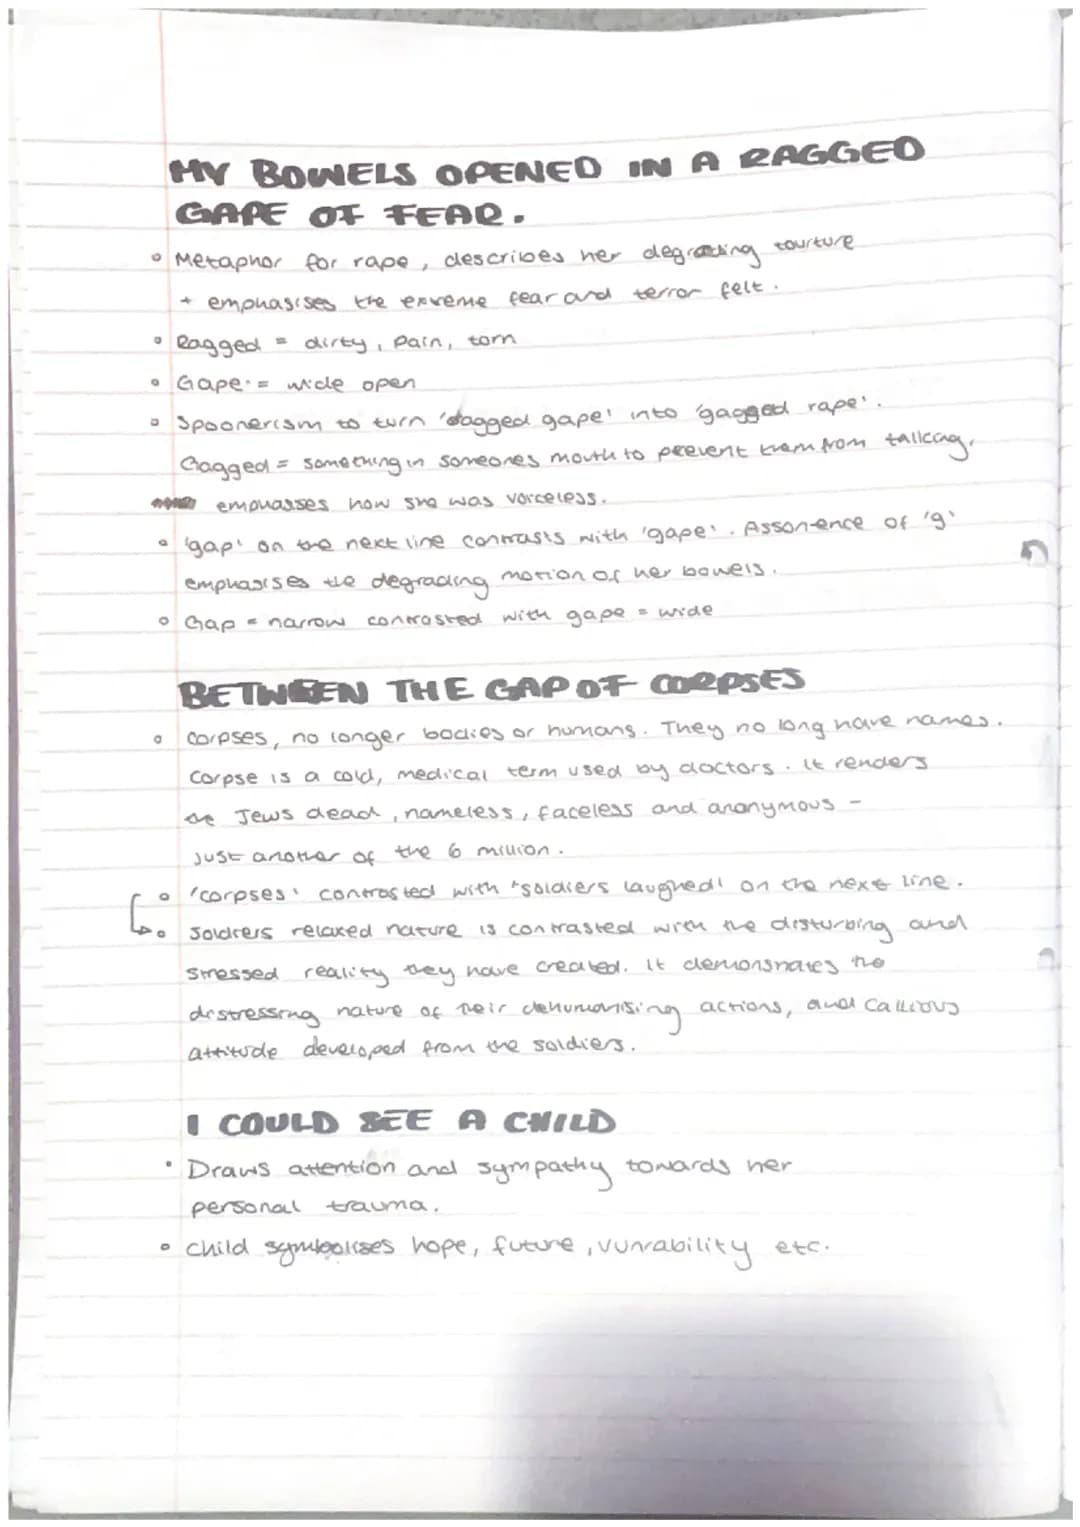 MY BOWELS OPENED IN A RAGGED
GAPE OF FEAR.
Metaphor for rape, describes her degrading tourture
+ emphasises the exreme fear and terror felt.
Ragged = dirty, pain, torn
Gape = wide open
Spoonerism to turn 'ragged gape' into 'gagged rape'.
Gagged = something in someones mouth to prevent them from talking,
emphasses how she was voiceless.
'gap' on the next line contrasts with 'gape'. Assonence of 'g'
emphasises the degrading motion of her bowels.
Gap = narrow contrasted with gape = wide
BETWEEN THE GAP OF CORPSES
corpses, no longer bodies or humans. They no long have names.
Corpse is a cold, medical term used by doctors. It renders
the Jews dead, nameless, faceless and anonymous -
just another of the 6 million.
'corpses' contrasted with 'soldiers laughed' on the next line.
Soldiers relaxed nature is contrasted with the disturbing and
stressed reality they have created. It demonsrates the
distressing nature of their dehumanising actions, and callious
attitude developed from the soldiers.
I COULD SEE A CHILD
Draws attention and sympathy towards her
personal trauma.
child symbolises hope, future, vunrability etc.